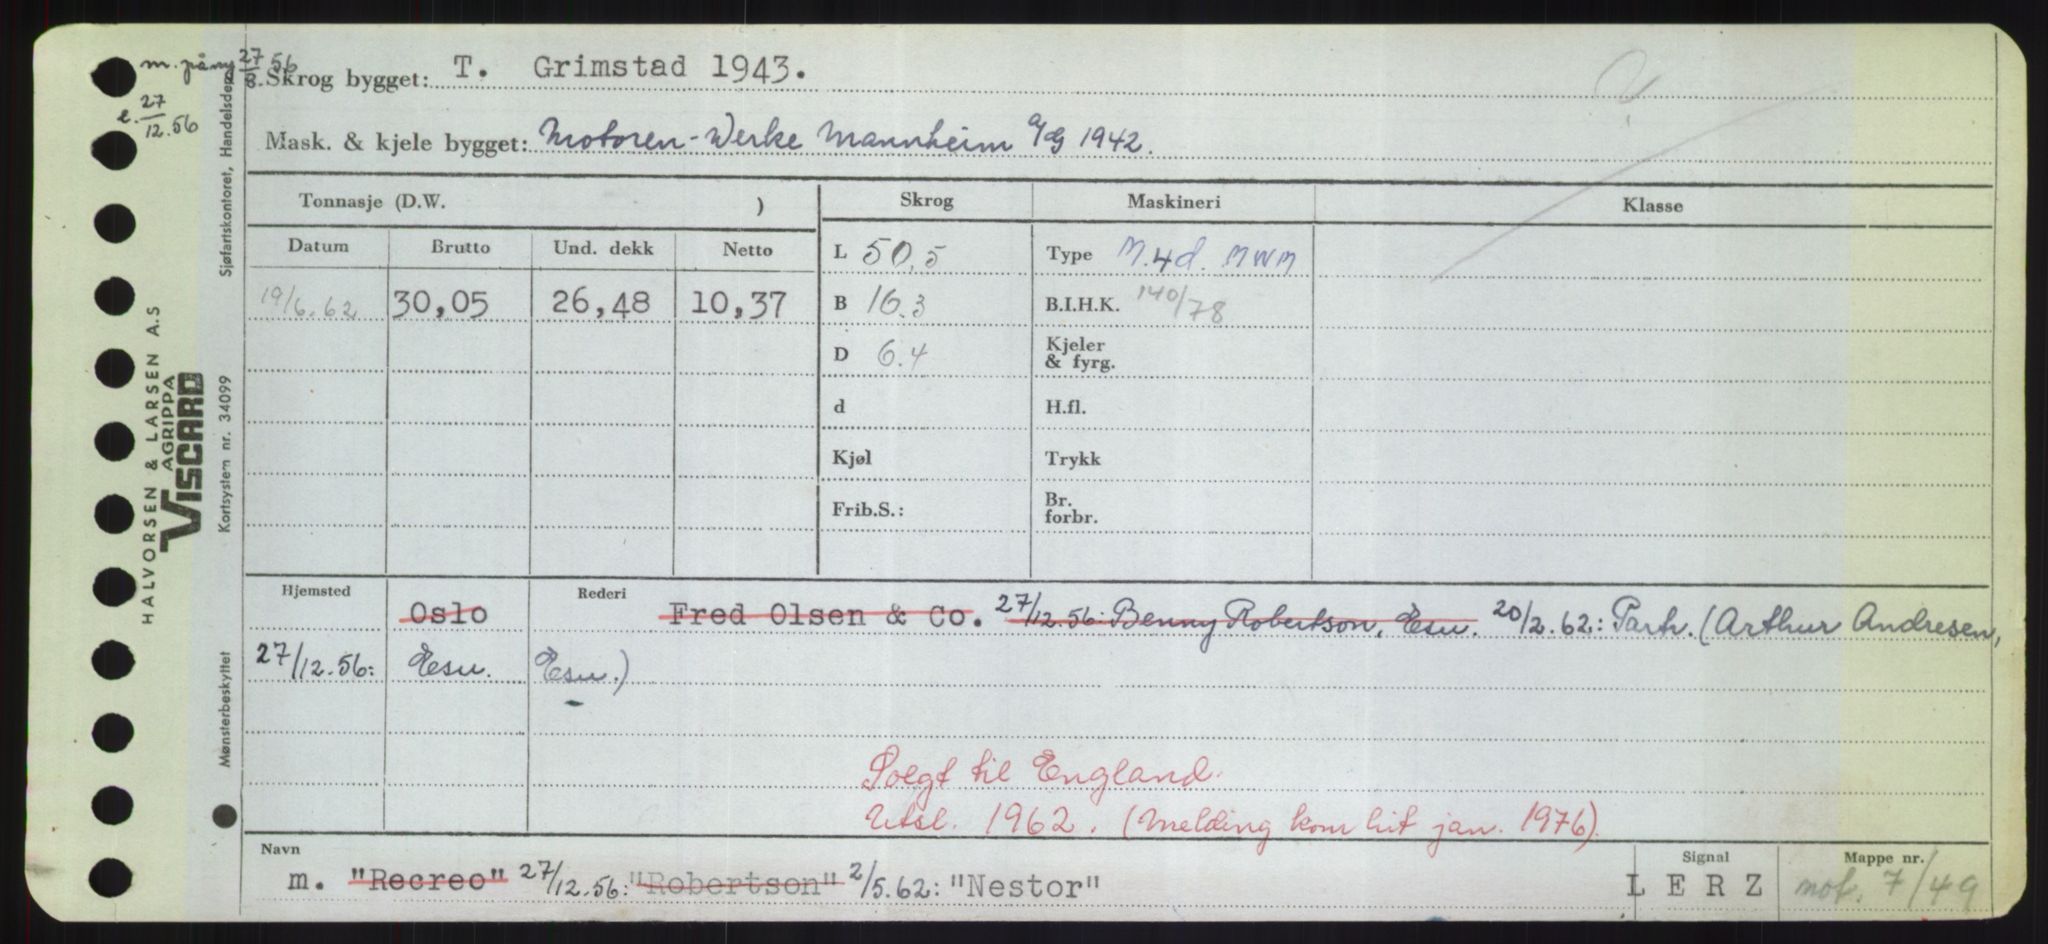 m. påny 27/8.56
e. 27/12.56
Skrog bygget: T. Grimstad 1943.
Mask. & kjele bygget: Motoren-Werke Mannheim A/G 1942.
Tonnasje (D.W. )
Skrog
Maskineri
Klasse
Datum Brutto Und. dekk Netto
L 50,5
Type M.4d. MWM
19/6.62 30,05 26,48 10,37
B 16.3
B.I.H.K. 140/78
D 6.4
Kjeler & fyrg.
d
H.fl.
Kjøl
Trykk
Frib.S.:
Br. forbr.
Hjemsted Oslo
Rederi Fred Olsen & Co. 27/12.56: Benny Robertson, Esn. 20/2.62: Partr. (Arthur Andresen,
27/12.56: Esn. Esn.)
Solgt til England.
Utsl. 1962. (Melding kom hit jan. 1976).
Navn
Signal
Mappe nr.
m. "Recreo" 27/12.56: "Robertson" 2/5.62: "Nestor"
LERZ
mot. 7/49
HALVORSEN & LARSEN A.S
AGRIPPA
VISCARD
Sjøfartskontoret, Handelsdep.
Kortsystem nr. 34099
Mønsterbeskyttet